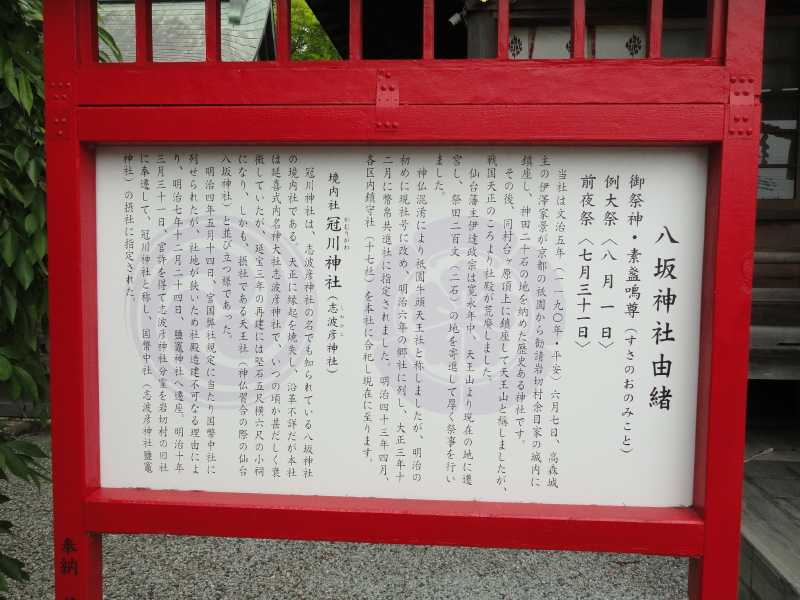 八坂神社由緒
御祭神・素盞嗚尊(すさのおのみこと)
例大祭〈八月一日〉
前夜祭〈七月三十一日〉
当社は文治五年(一一九〇年・平安)六月七日、高森城
主の伊澤家景が京都の祇園から勧請岩切村余目家の城内に
鎮座し、神田二十石の地を納めた歴史ある神社です。
その後、同村台ヶ原頂上に鎮座して天王山と称しましたが、
戦国天正のころより社殿が荒廃しました。
仙台藩主伊達政宗は寛永年中、天王山より現在の地に遷
宮し、祭田二百文(二石)の地を寄進して厚く祭事を行い
ました。
神仏混淆により祇園牛頭天王社と称しましたが、明治の
初めに現社号に改め、明治六年の郷社に列し、大正三年十
二月に幣帛共進社に指定されました。明治四十三年四月、
各区内鎮守社(十七社)を本社に合祀し現在に至ります。
境内社 冠川神社(志波彦神社)
かむりがわ
しわひこ
冠川神社は、志波彦神社の名でも知られている八坂神社
の境内社である。天正に縁起を焼失し、沿革不詳だが本社
は延喜式内名神大社志波彦神社で、いつの頃か甚だしく衰
微していたが、延宝三年の再建には竪石五尺横六尺の小祠
になり、しかも、摂社である天王社(神仏習合の際の仙台
八坂神社)と並び立つ様であった。
明治四年五月十四日、官国弊社規定に当たり国幣中社に
列せられたが、社地が狭いため社殿造建不可なる理由によ
り、明治七年十二月二十四日、鹽竈神社へ遷座。明治十年
三月三十一日、官許を得て志波彦神社分霊を岩切村の旧社
に奉遷して、冠川神社と称し、国幣中社(志波彦神社鹽竈
神社)の摂社に指定された。
奉納